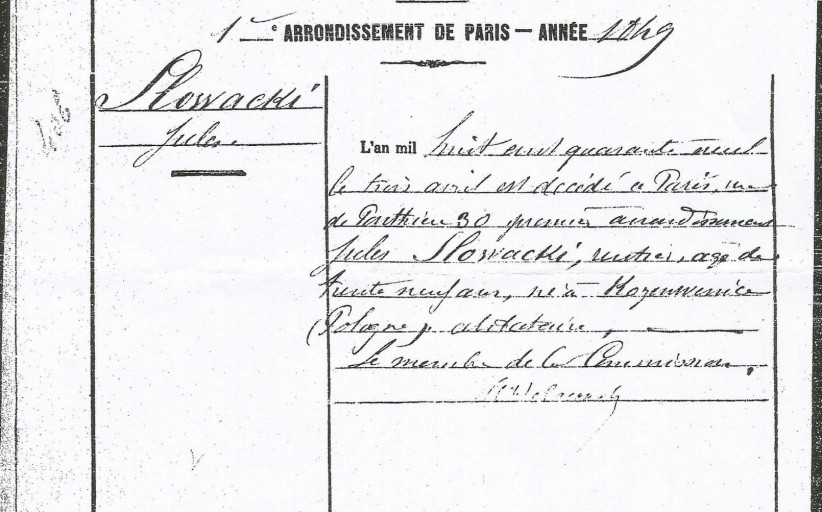 1er ARRONDISSEMENT DE PARIS — ANNÉE 1849
Slowacki
Jules
L'an mil huit cent quarante neuf
le trois avril est décédé à Paris, rue
de Ponthieu 30 premier arrondissement
Jules Slowacki, rentier, agé de
trente neuf ans, né à
(Pologne), célibataire,
Le membre de la Commission,